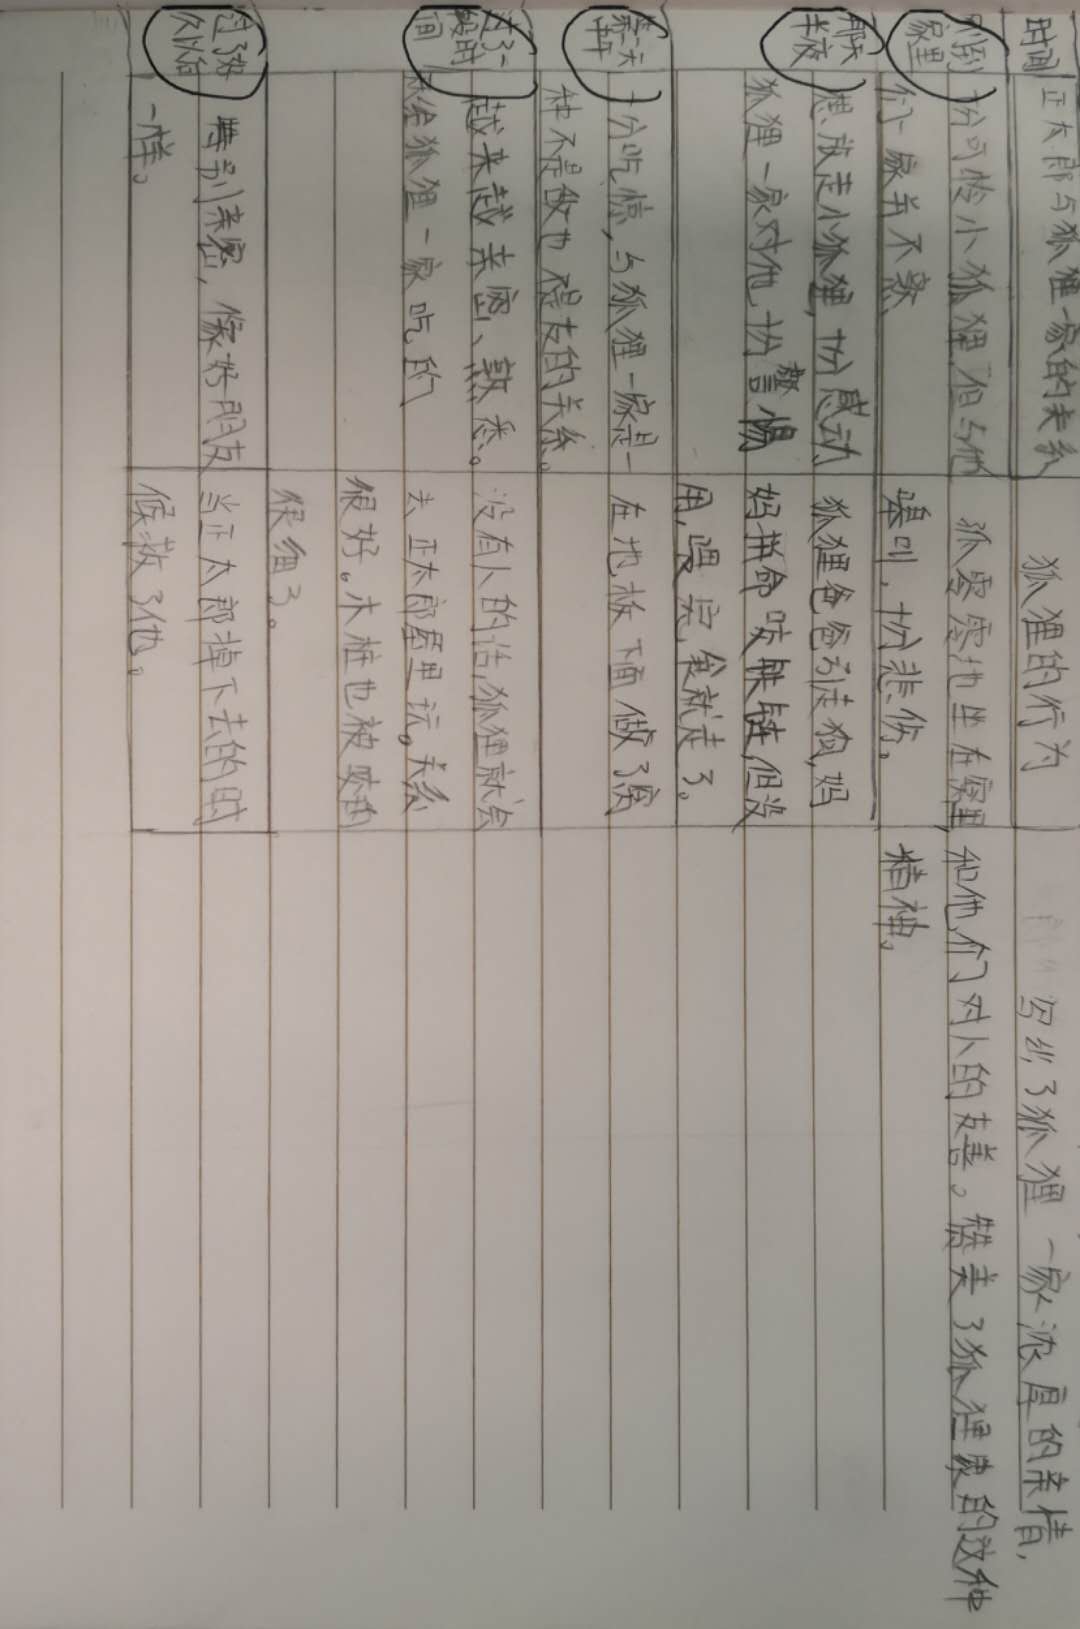 时间 正太郎与狐狸一家的关系 狐狸的行为 写出了狐狸一家浓厚的亲情,
刚到 十分可怜小狐狸,但与他 孤零零地坐在窝里, 和他们对人的友善。赞美了狐狸家的这种
家里 们一家并不熟 嚎叫,十分悲伤。 精神。
那天 想放走小狐狸,十分感动 狐狸爸爸引走狗,妈
半夜 狐狸一家对他十分警惕 妈拼命咬铁链,但没
用,喂完食就走了。
第二天 十分吃惊,与狐狸一家是一 在地板下面做了窝
种不是敌也不是友的关系。
过了一 越来越亲密、熟悉。 没有人的话,狐狸就会
段时 给狐狸一家吃的 去正太郎屋里玩。关系
间
很好。木桩也被咬的
很细了。
过了很 特别亲密,像好朋友 当正太郎掉下去的时
久以后 一样。 候救了他。